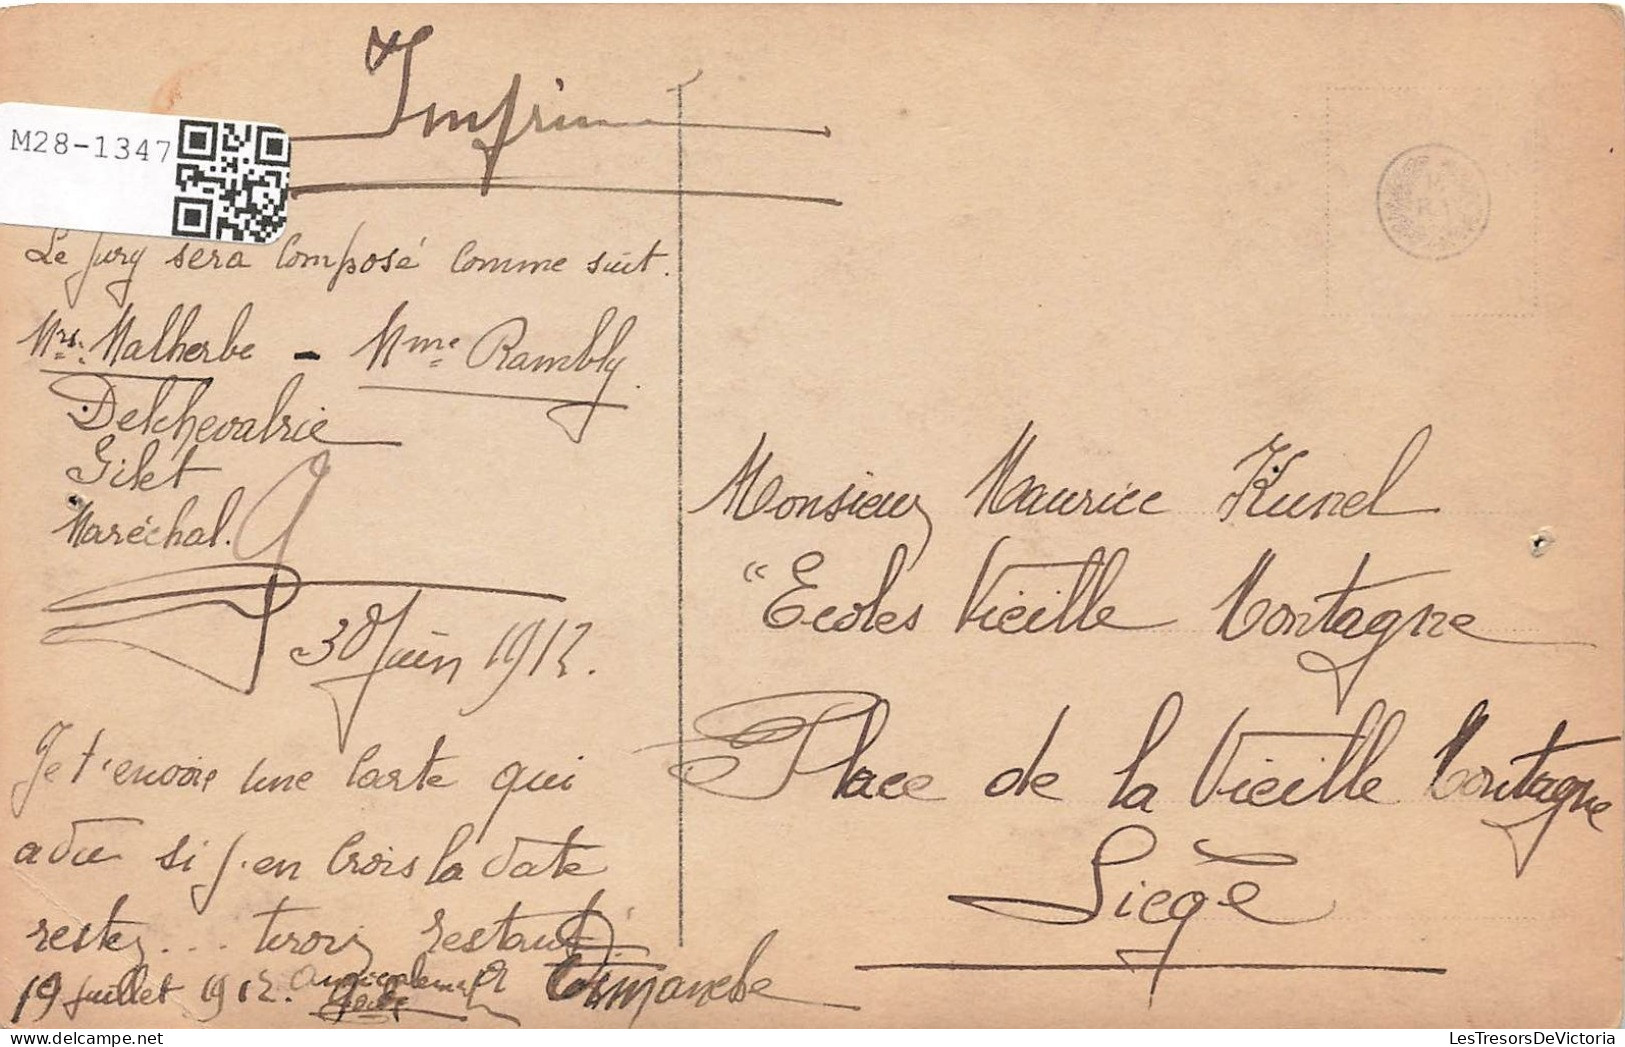 Imprimé
M28-1347
Le jury sera composé comme suit.
Mrs. Malherbe - Mme Rambly.
Delchevalrie
Gilet
Maréchal.
30 Juin 1912.
Je t'envoie une carte qui
a dû si j'en crois la date
rester...
19 juillet 1912.
Monsieur Maurice Kunel
"Ecoles Vieille Montagne
Place de la Vieille Montagne
Liège
LesTresorsDeVictoria